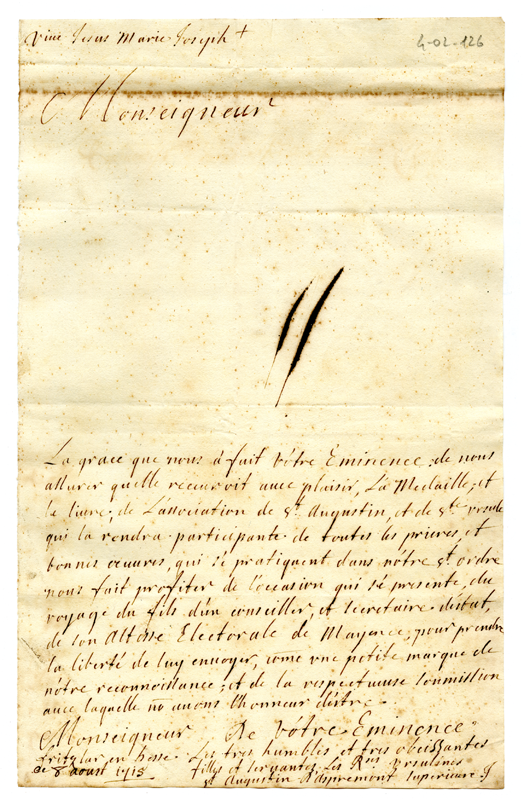 Vive Jesus Marie Joseph +
4-02-126
Monseigneur
La grace que nous à fait vôtre Eminence, de nous
assurer quelle receuroit auec plaisir, La Medaille, et
le liure, de L'association de st. Augustin, et de ste ursule
qui la rendra participante de toutes les prieres, et
bonnes œuures, qui se pratiquent dans nôtre st ordre
nous fait profiter de l'occasion qui sé presente, du
voyage du fils d'un conseiller, et secretaire d'êstat,
de son Altesse Electorale de Mayence, pour prendre
la liberté de luy enuoyer, come vne petite marque de
nôtre reconnoissance, et de la respectueuse soumission
auec laquelle no auons l'honneur d'êstre
Monseigneur De vôtre Eminence
fritzlar en hesse Les tres humbles et tres obeissantes
ce 8 aoust 1713 filles et seruantes Les Rses vrsulines
st Augustin D'aspremont superieure